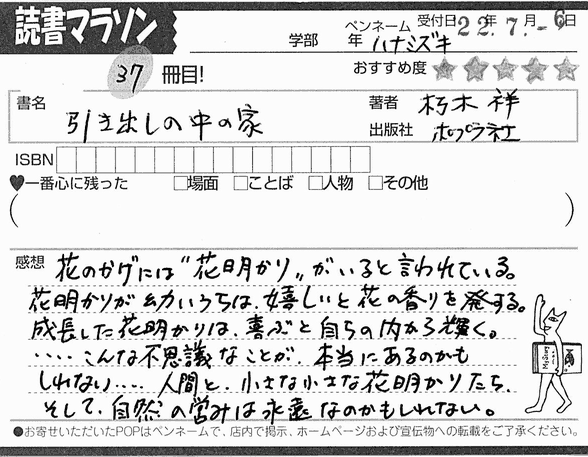 読書マラソン
学部 年 ペンネーム ハナミズキ 受付日 22年7月-6日
37 冊目! おすすめ度 ★★★★★
書名 引き出しの中の家 著者 朽木 祥
出版社 ポプラ社
ISBN
♥一番心に残った □場面 □ことば □人物 □その他
( )
感想 花のかげには“花明かり„がいると言われている。
花明かりが幼いうちは、嬉しいと花の香りを発する。
成長した花明かりは、喜ぶと自らの内から輝く。
‥‥こんな不思議なことが、本当にあるのかも
しれない‥‥人間と、小さな小さな花明かりたち、
そして、自然の営みは永遠なのかもしれない。
●お寄せいただいたPOPはペンネームで、店内で掲示、ホームページおよび宣伝物への転載をご了承ください。